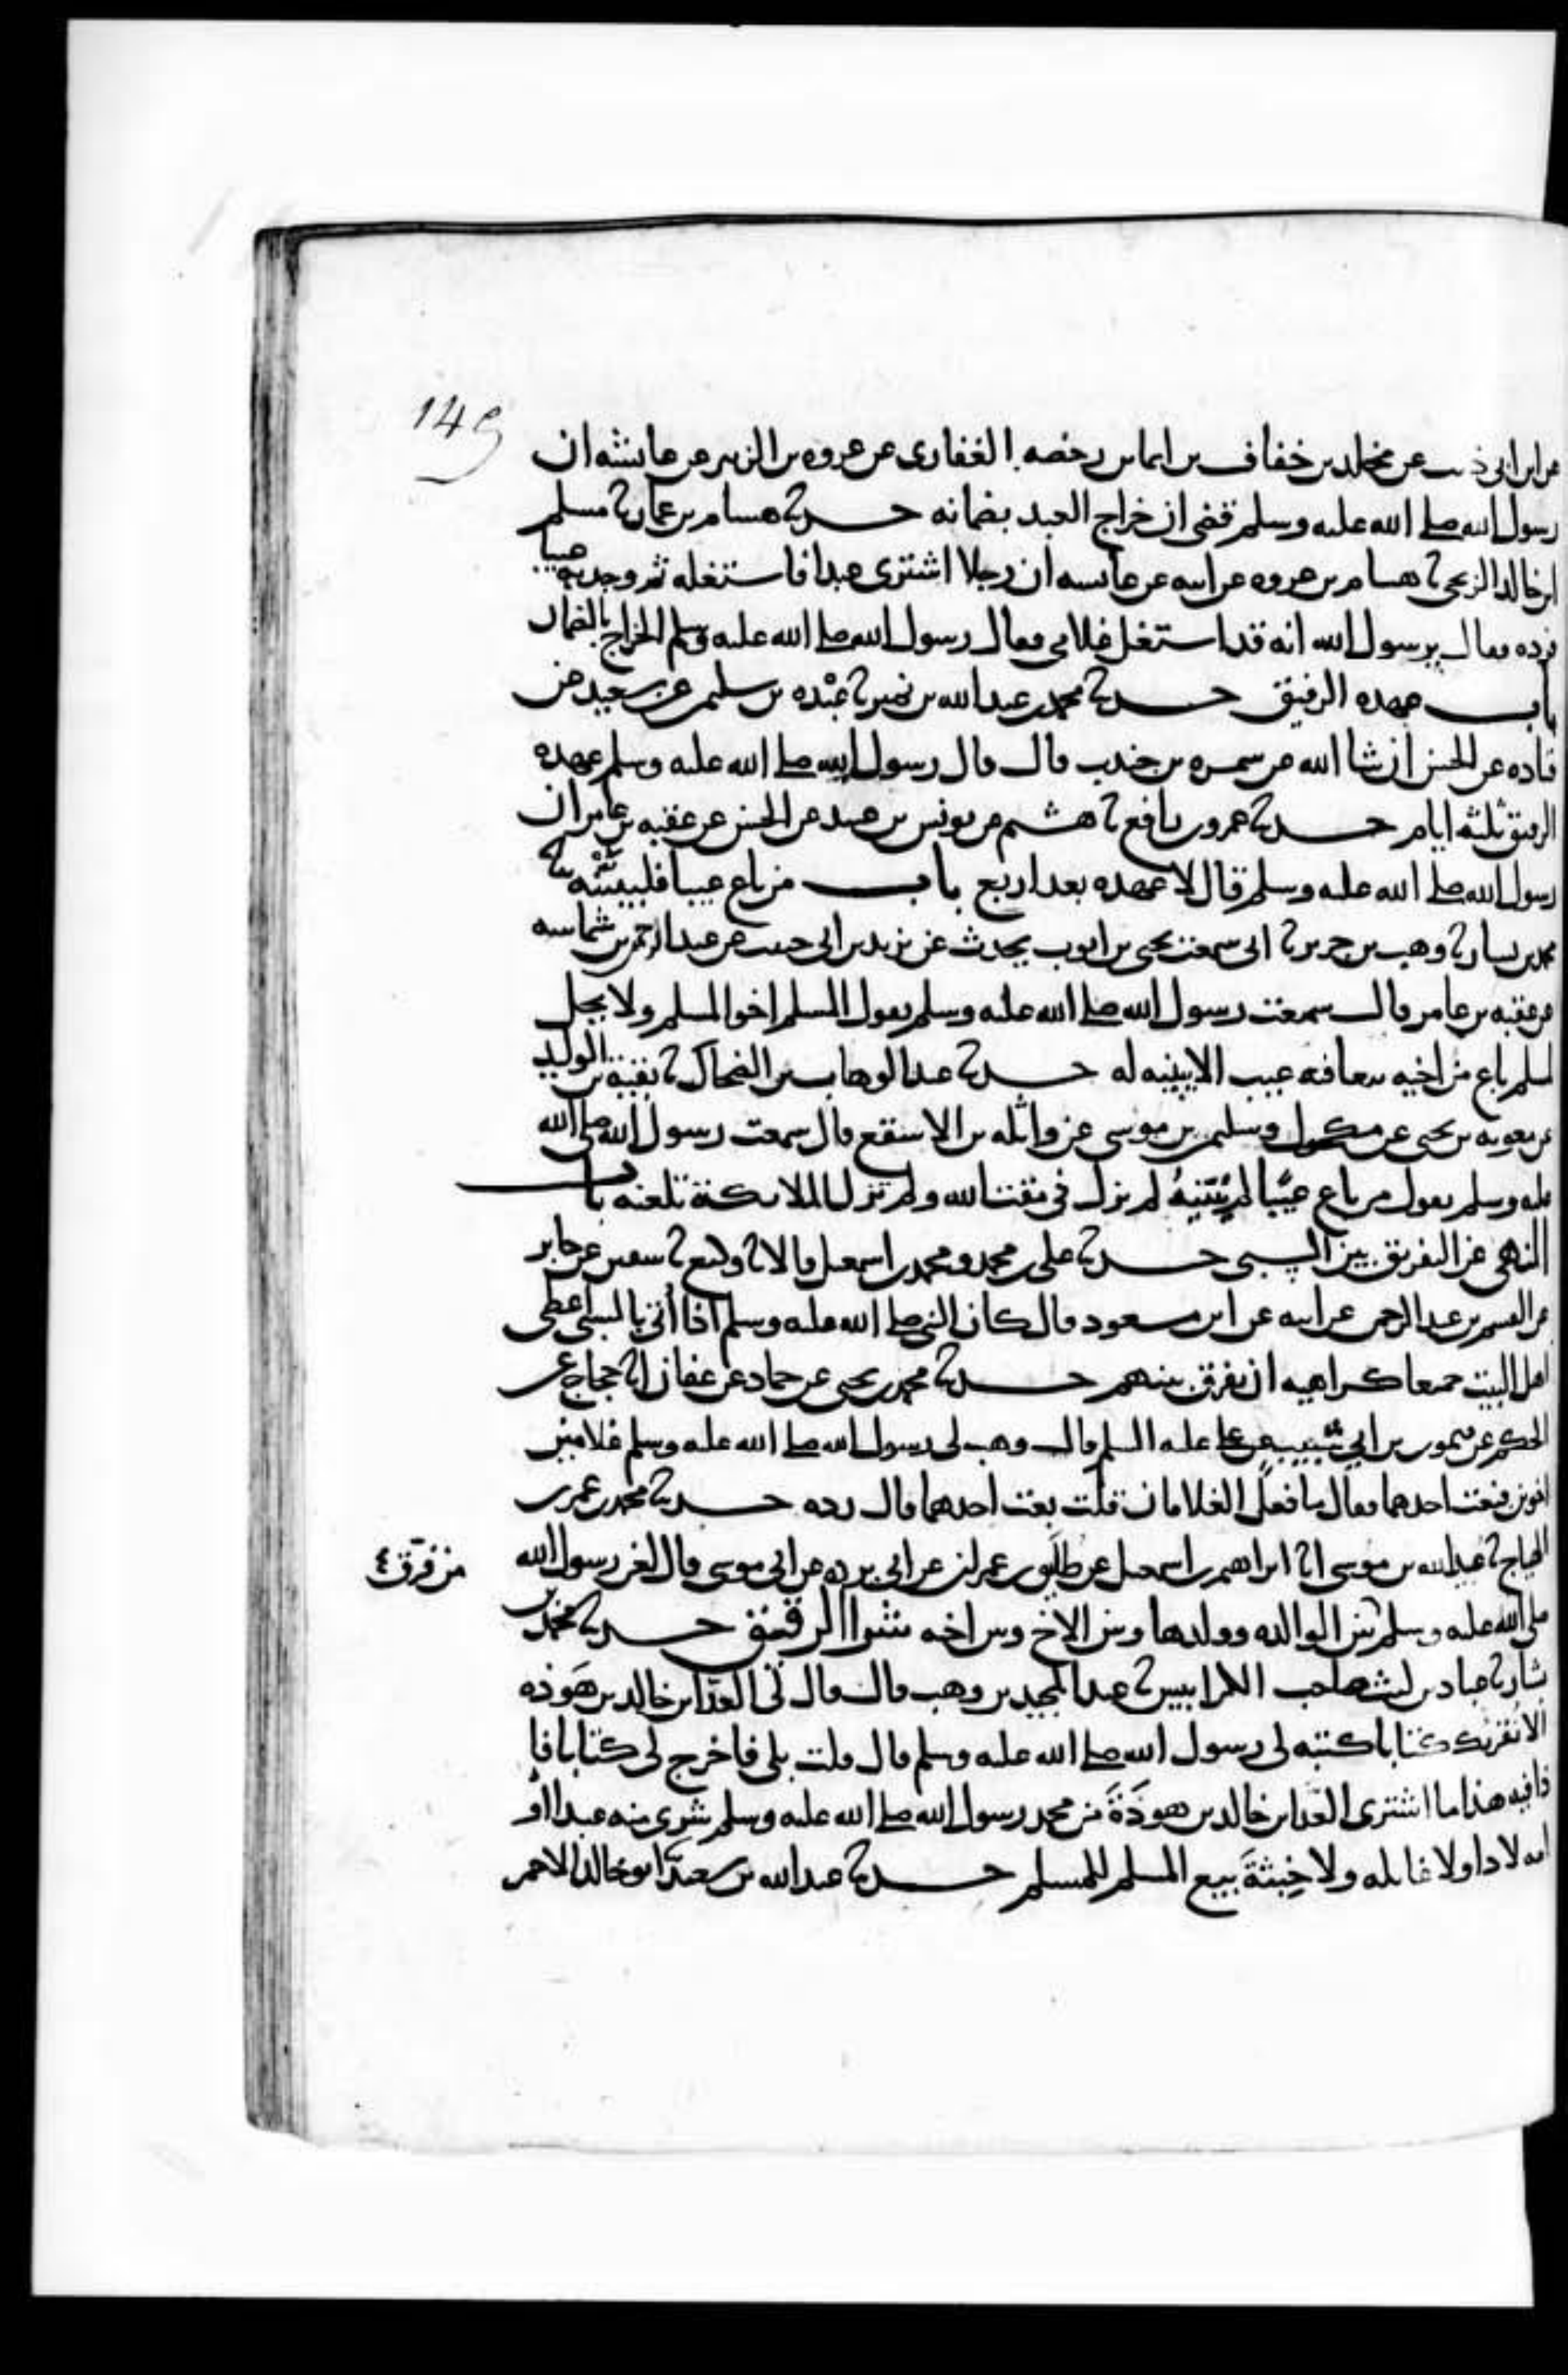 149
عن ابن ابى ذىب عن مخلد بن خفاف بن ايما بن رخصه الغفارى عن عروه بن الزبير عن عايشه ان
رسول الله صلى الله عليه وسلم قضى ان خراج العبد بضمانه حدثنا هشام بن عمار ثنا مسلم
ابن خالد الزنجى ثنا هشام بن عروه عن ابيه عن عايشه ان رجلا اشترى عبدا فاستغله ثم وجد به عيبا
فرده فقال يرسول الله انه قد استغل غلامى فقال رسول الله صلى الله عليه وسلم الخراج بالضمان
باب عهده الرقيق حدثنا محمد بن عبد الله بن نمير ثنا عبده بن سليمن عن سعيد عن
قتاده عن الحسن ان شا الله عن سمره بن جندب قال قال رسول الله صلى الله عليه وسلم عهده
الرقيق ثلثه ايام حدثنا عمرو بن رافع ثنا هشيم عن يونس بن عبيد عن الحسن عن عقبه بن عامر ان
رسول الله صلى الله عليه وسلم قال لا عهده بعد اربع باب من باع عيبا فليبينه ثنا
محمد بن بشار ثنا وهب بن جرير ثنا ابى سمعت يحيى بن ايوب يحدث عن يزيد بن ابى حبيب عن عبد الرحمن بن شماسه
عن عقبه بن عامر قال سمعت رسول الله صلى الله عليه وسلم يقول المسلم اخو المسلم ولا يحل
لمسلم باع من اخيه بيعا فيه عيب الا بينه له حدثنا عبد الوهاب بن الضحاك ثنا بقيه بن الوليد
عن معويه بن يحيى عن مكحول وسليمن بن موسى عن واثله بن الاسقع قال سمعت رسول الله صلى الله
عليه وسلم يقول من باع عيبا لم يبينه لم يزل فى مقت الله ولم تزل الملايكة تلعنه باب
النهى عن التفريق بين السبى حدثنا على بن محمد ومحمد بن اسمعيل قالا ثنا وكيع ثنا سفين عن جابر
عن القسم بن عبد الرحمن عن ابيه عن ابن مسعود قال كان النبى صلى الله عليه وسلم اذا أتى بالسبى اعطى
اهل البيت جميعا كراهيه ان يفرق بينهم حدثنا محمد بن يحيى عن حماد عن عفان انا حجاج عن
الحكم عن ميمون بن ابى شبيب عن على عليه السلم قال وهب لى رسول الله صلى الله عليه وسلم غلامين
اخوين فبعت احدهما فقال ما فعل الغلامان قلت بعت احدهما قال رده حدثنا محمد بن عمر بن
الهياج ثنا عبيد الله بن موسى انا ابراهيم بن اسمعيل عن طليق بن عمران عن ابى برده عن ابى موسى قال لعن رسول الله
من فرق
صلى الله عليه وسلم بين الوالده وولدها وبين الاخ وبين اخيه حدثنا محمد بن
بشار ثنا عباد بن ليث صاحب الكرابيس ثنا عبد المجيد بن وهب قال قال لى العدا بن خالد بن هوذه
الا نقريك كتابا كتبه لى رسول الله صلى الله عليه وسلم قال قلت بلى فاخرج لى كتابا فا
ذا فيه هذا ما اشترى العدا بن خالد بن هوذة من محمد رسول الله صلى الله عليه وسلم شرى منه عبدا او
امه لا دا ولا غايله ولا خبثة بيع المسلم للمسلم حدثنا عبد الله بن سعيد ثنا ابو خالد الاحمر